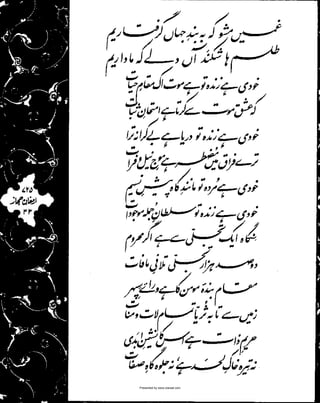 غمیں مشو کہ بہ بندِ جہاں گرفتاریم
طلسم ہا شکند آں دلے کہ ما داریم
خودی ہے زندہ تو ہے موت اک مقامِ حیات
کہ عشق موت سے کرتا ہے امتحانِ ثبات
خودی ہے زندہ تو دریا ہے بے کرانہ ترا
ترے فراق میں مضطر ہے موجِ نیل و فرات
خودی ہے مردہ تو مانندِ کاہ پیشِ نسیم
خودی ہے زندہ تو سلطانِ جملہ موجودات
نگاہ ایک تجلی سے ہے اگر محروم
دو صد ہزار تجلی تلافیِ مافات
مقام بندۂ مومن کا ہے ورائے سپہر
زمیں سے تا بہ ثریا تمام لات و منات
حریمِ ذات ہے اس کا نشیمنِ ابدی
نہ تیرہ خاکِ لحد ہے، نہ جلوہ گاہِ صفات
۶۷۵
ارمغانِ حجاز
۳۳